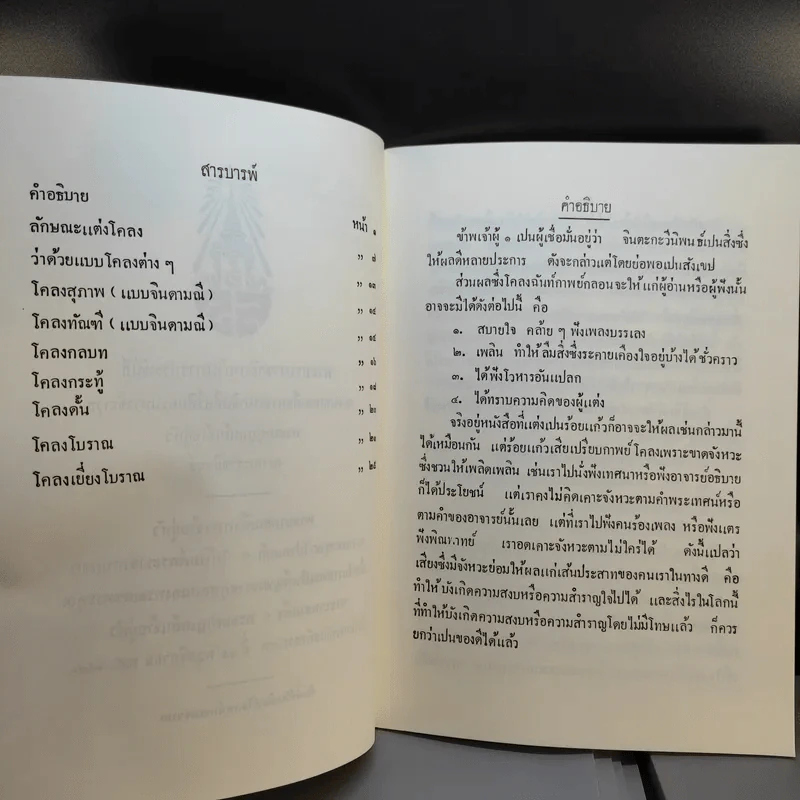 สารบารพ์
คำอธิบาย
ลักษณะแต่งโคลง หน้า ๑
ว่าด้วยแบบโคลงต่าง ๆ ,, ๗
โคลงสุภาพ (แบบจินดามณี) ,, ๑๓
โคลงทัณฑี (แบบจินดามณี) ,, ๑๔
โคลงกลบท ,, ๑๖
โคลงกระทู้ ,, ๑๘
โคลงดั้น ,, ๒๐
โคลงโบราณ
โคลงเยี่ยงโบราณ
คำอธิบาย
ข้าพเจ้าผู้ ๑ เปนผู้เชื่อมั่นอยู่ว่า จินตะกะวีนิพนธ์เปนสิ่งซึ่ง
ให้ผลดีหลายประการ ดังจะกล่าวแต่โดยย่อพอเปนสังเขป
ส่วนผลซึ่งโคลงฉันท์กาพย์กลอนจะให้แก่ผู้อ่านหรือผู้ฟังนั้น
อาจจะมีได้ดังต่อไปนี้ คือ
๑. สบายใจ คล้าย ๆ ฟังเพลงบรรเลง
๒. เพลิน ทำให้ลืมสิ่งซึ่งระคายเคืองใจอยู่บ้างได้ชั่วคราว
๓. ได้ฟังโวหารอันแปลก
๔. ได้ทราบความคิดของผู้แต่ง
จริงอยู่หนังสือที่แต่งเปนร้อยแก้วก็อาจจะให้ผลเช่นกล่าวมานี้
ได้เหมือนกัน แต่ร้อยแก้วเสียเปรียบกาพย์โคลงเพราะขาดจังหวะ
ซึ่งชวนให้เพลิดเพลิน เช่นเราไปนั่งฟังเทศนาหรือฟังอาจารย์อธิบาย
ก็ได้ประโยชน์ แต่เราคงไม่คิดเคาะจังหวะตามคำพระเทศน์หรือ
ตามคำของอาจารย์นั้นเลย แต่ที่เราไปฟังคนร้องเพลง หรือฟังแตร
ฟังพิณพาทย์ เราอดเคาะจังหวะตามไม่ใคร่ได้ ดังนี้แปลว่า
เสียงซึ่งมีจังหวะย่อมให้ผลแก่เส้นประสาทของคนเราในทางดี คือ
ทำให้บังเกิดความสงบหรือความสำราญใจไปได้ และสิ่งไรในโลกนี้
ที่ทำให้บังเกิดความสงบหรือความสำราญโดยไม่มีโทษแล้ว ก็ควร
ยกว่าเปนของดีได้แล้ว